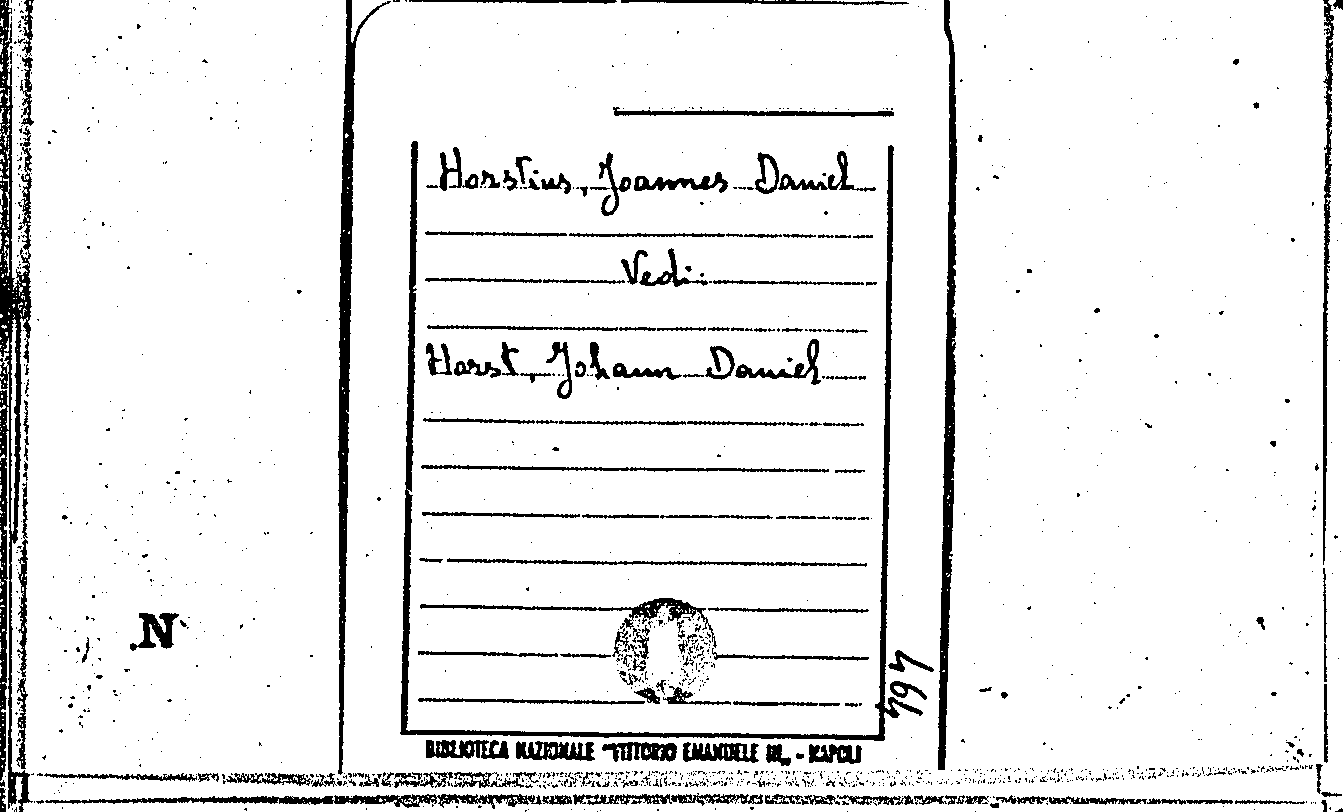 Horstius, Joannes Daniel
Vedi:
Horst, Johann Daniel
N
464
BIBLIOTECA NAZIONALE "VITTORIO EMANUELE III„ - NAPOLI